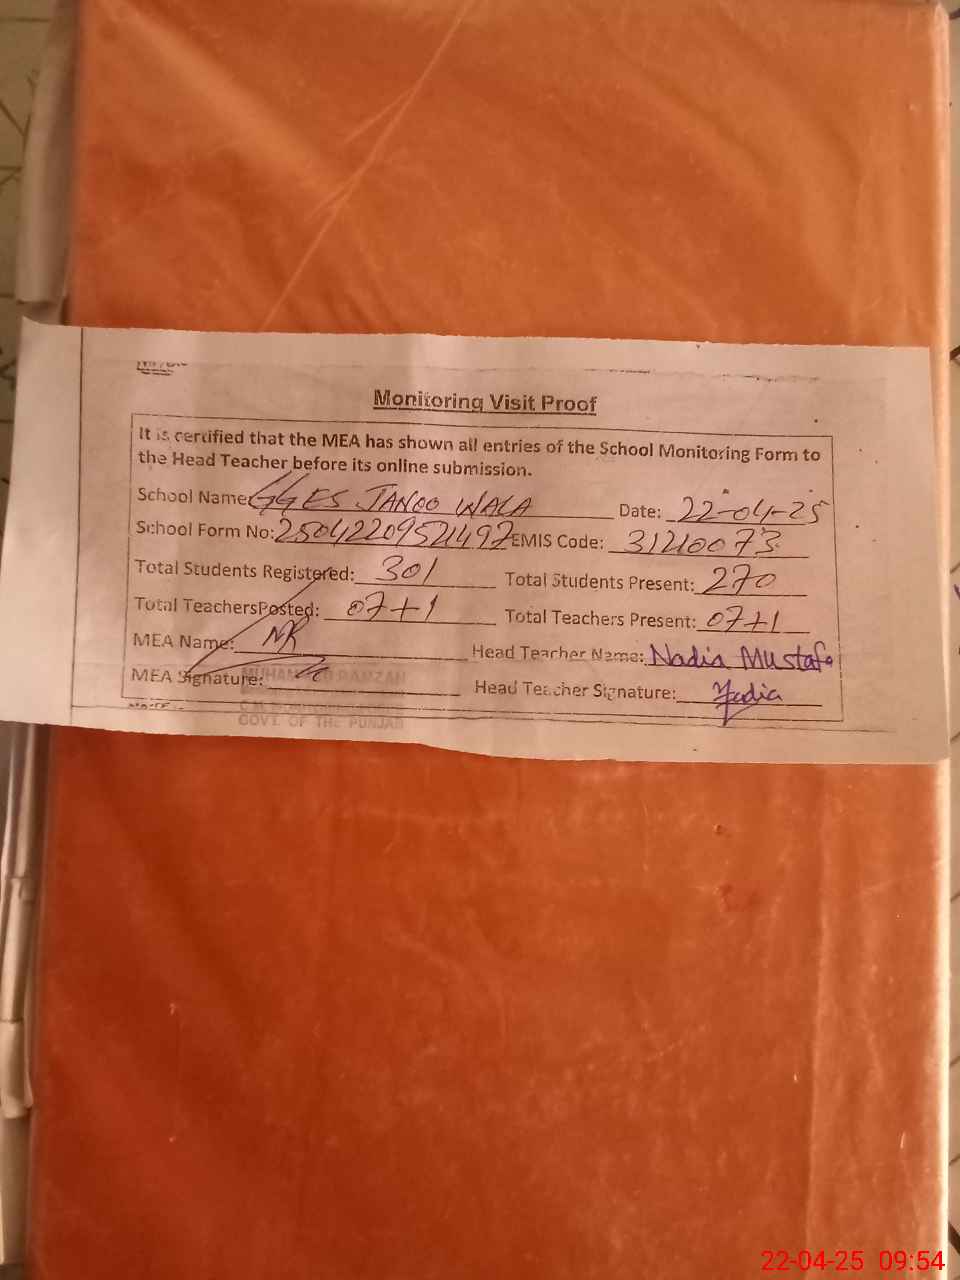 Monitoring Visit Proof
It is certified that the MEA has shown all entries of the School Monitoring Form to
the Head Teacher before its online submission.
School Name: GGES JANOO WALA Date: 22-04-25
School Form No: 25042209521497 EMIS Code: 31210073
Total Students Registered: 301 Total Students Present: 270
Total TeachersPosted: 07+1 Total Teachers Present: 07+1
MEA Name: MR Head Teacher Name: Nadia Mustafa
MEA Signature: MUHAMMAD RAMZAN Head Teacher Signature: Nadia
GOVT. OF THE PUNJAB
22-04-25 09:54